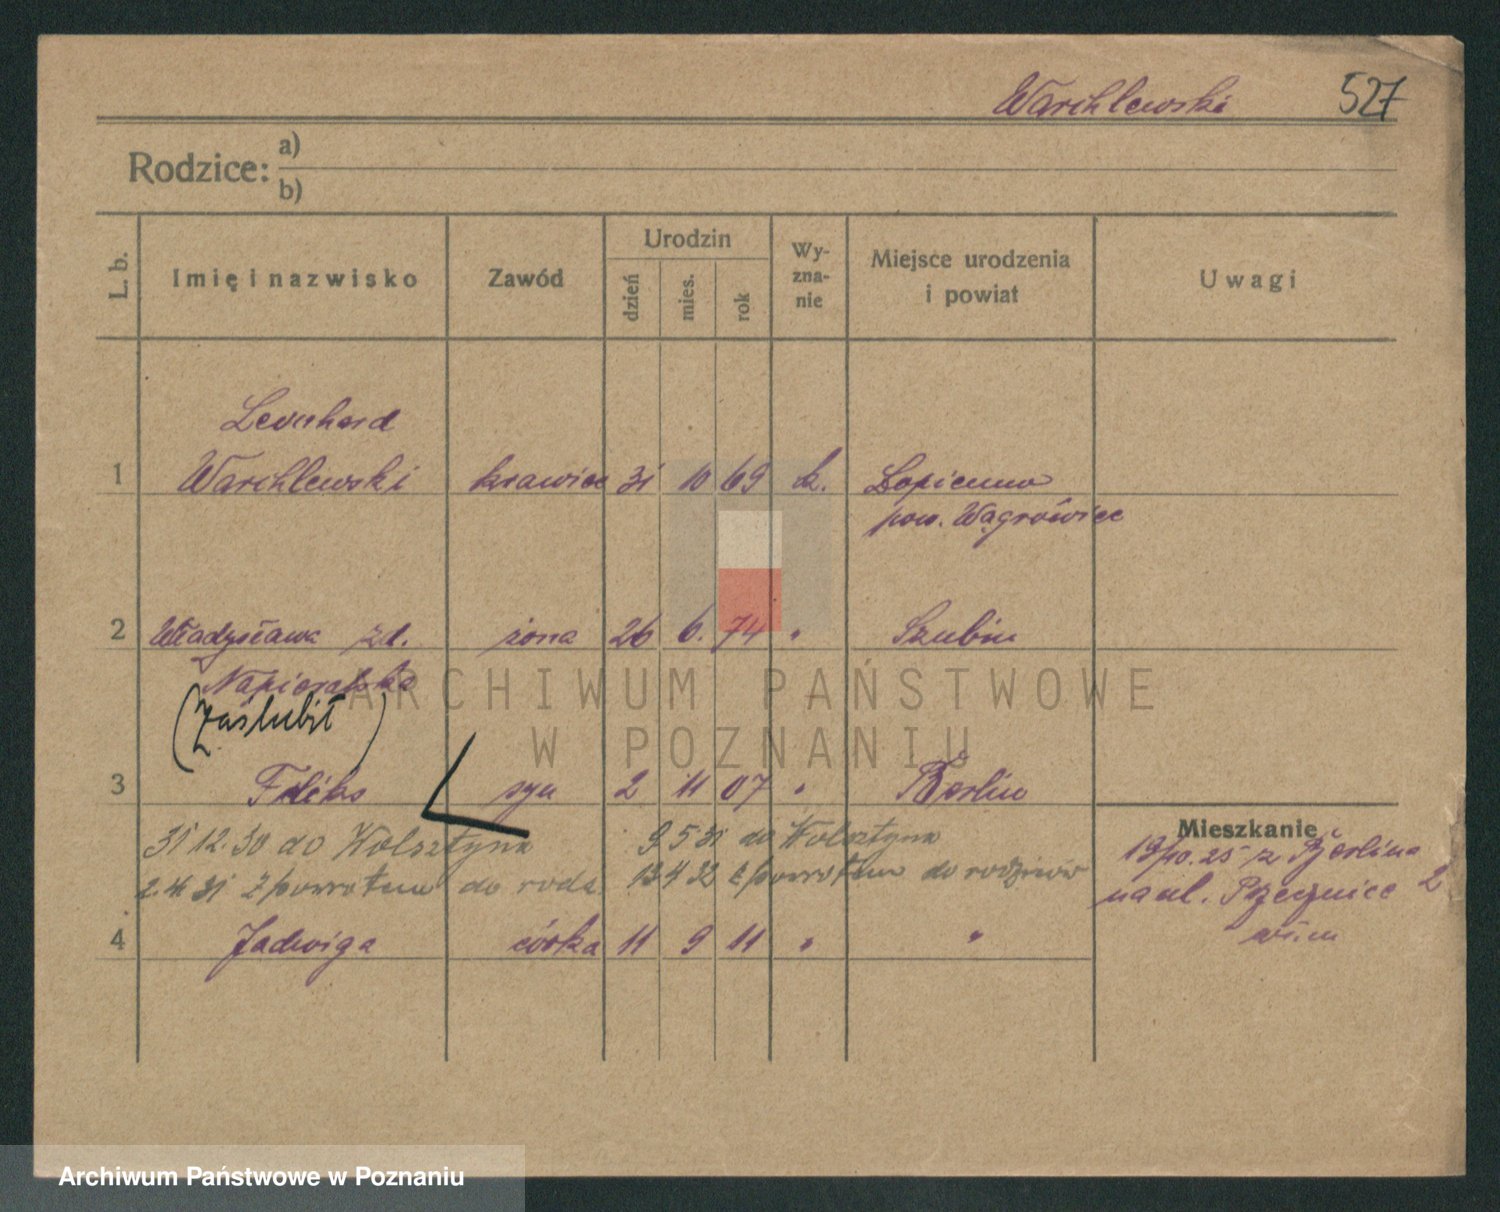 Warchlewski 527
Rodzice: a)
b)
L. b. Imię i nazwisko Zawód Urodzin dzień mies. rok Wy-zna-nie Miejsce urodzenia i powiat Uwagi
Leonhard
1 Warchlewski krawiec 31 10 69 k. Łopienno
pow. Wągrówiec
2 Władysława zd. żona 26 6. 74 " Szubin
Napieralska
ARCHIWUM PAŃSTWOWE
W POZNANIU
(Zaślubił)
3 Feliks syn 2 11 07 " Berlin
31 12.30 do Wolsztyna 9 5 31 do Wolsztyna
2. 4 31 z powrotem do rodz. 13 4 32 z powrotem do rodziców
4 Jadwiga córka 11 9 11 " "
Mieszkanie
19/10. 25 z Berlina
na ul. 2
Archiwum Państwowe w Poznaniu